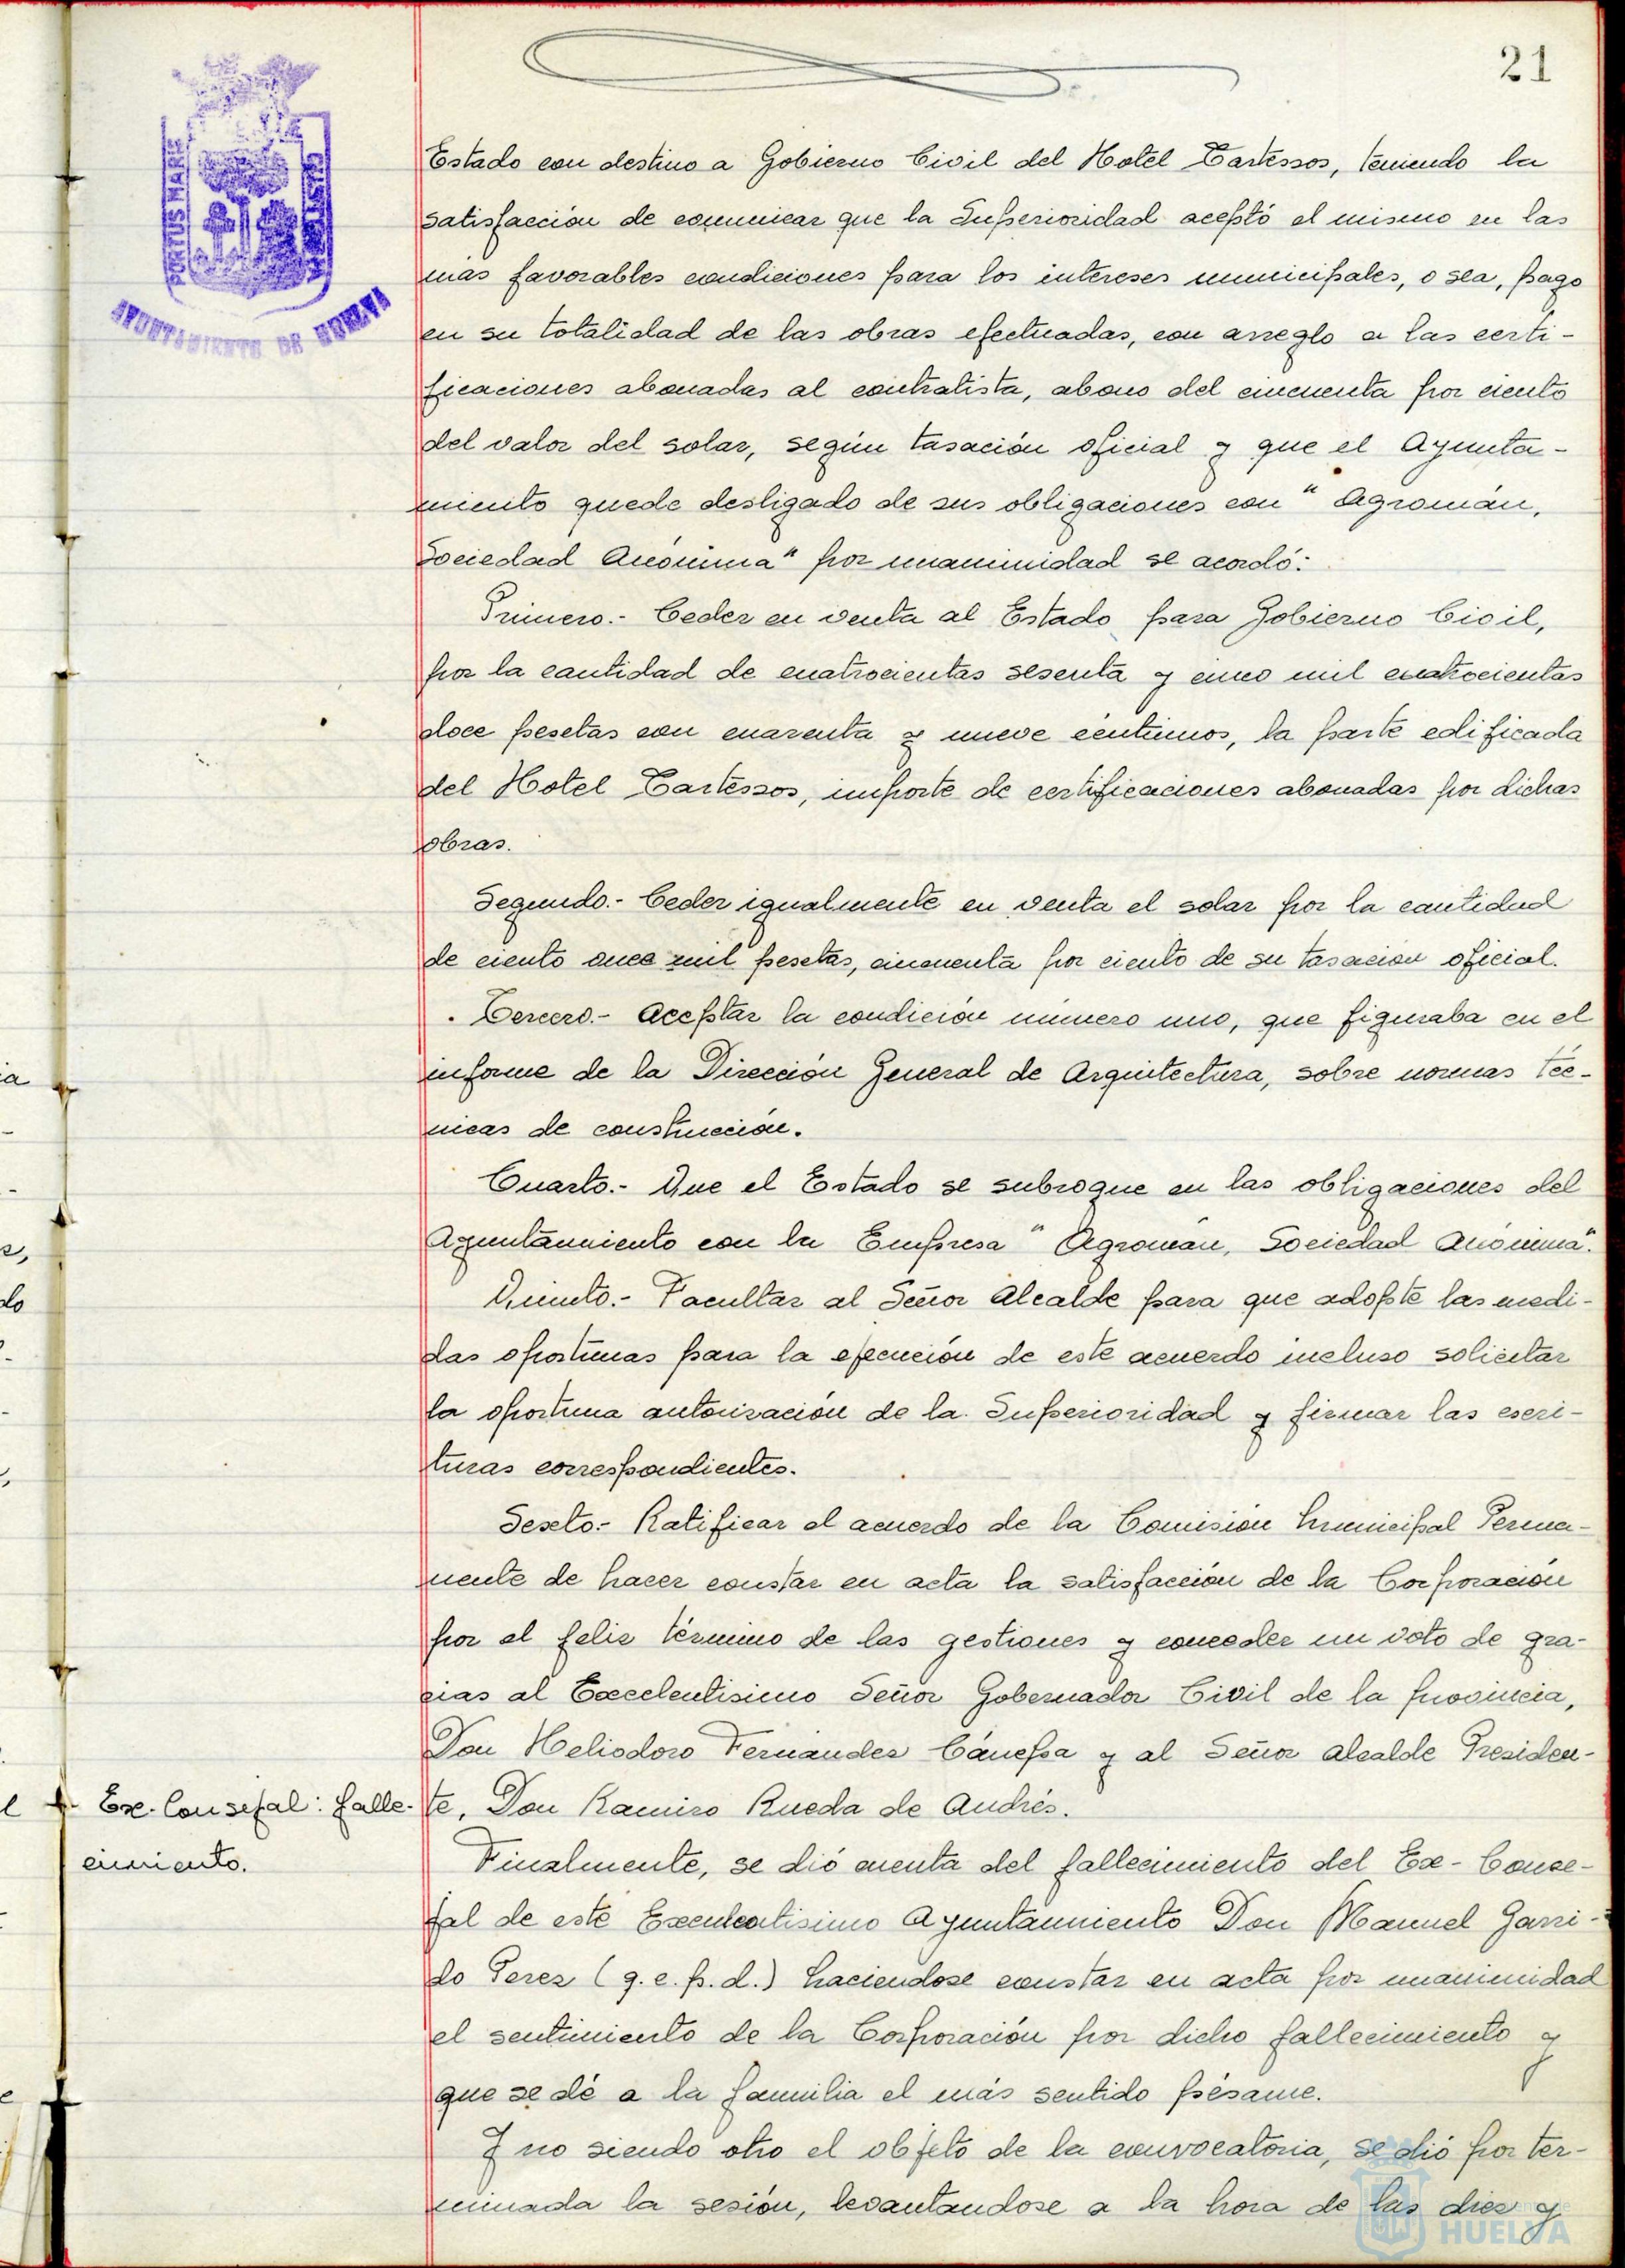 21
PORTUS MARIS
AYUNTAMIENTO DE HUELVA
Estado con destino a Gobierno Civil del Hotel Tartessos, teniendo la
satisfacción de comunicar que la Superioridad aceptó el mismo en las
mas favorables condiciones para los intereses municipales, o sea, pago
en su totalidad de las obras efectuadas, con arreglo a las certi-
ficaciones abonadas al contratista, abono del cincuenta por ciento
del valor del solar, según tasación oficial y que el Ayunta-
miento quede desligado de sus obligaciones con "Agromán,
Sociedad Anónima" por unanimidad se acordó:
Primero.- Ceder en venta al Estado para Gobierno Civil,
por la cantidad de cuatrocientas sesenta y cinco mil cuatrocientas
doce pesetas con cuarenta y nueve céntimos, la parte edificada
del Hotel Tartessos, importe de certificaciones abonadas por dichas
obras.
Segundo.- Ceder igualmente en venta el solar por la cantidad
de ciento once mil pesetas, cincuenta por ciento de su tasación oficial.
Tercero.- Aceptar la condición número uno, que figuraba en el
informe de la Dirección General de Arquitectura, sobre normas téc-
nicas de construcción.
Cuarto.- Que el Estado se subrogue en las obligaciones del
Ayuntamiento con la Empresa "Agroman, Sociedad Anónima".
Quinto.- Facultar al Señor Alcalde para que adopte las medi-
das oportunas para la ejecución de este acuerdo incluso solicitar
la oportuna autorización de la Superioridad y firmar las escri-
turas correspondientes.
Sexto.- Ratificar el acuerdo de la Comisión Municipal Perma-
nente de hacer constar en acta la satisfacción de la Corporación
por el feliz término de las gestiones y conceder un voto de gra-
cias al Excelentisimo Señor Gobernador Civil de la provincia,
Don Heliodoro Fernandez Cánepa y al Señor Alcalde Presiden-
te, Don Ramiro Rueda de Andrés.
Ex-Consejal: falle-
cimiento.
Finalmente, se dió cuenta del fallecimiento del Ex-Conse-
jal de este Excelentisimo Ayuntamiento Don Manuel Garri-
do Perez (q.e.p.d.) haciendose constar en acta por unanimidad
el sentimiento de la Corporación por dicho fallecimiento y
que se dé a la familia el más sentido pésame.
Y no siendo otro el objeto de la convocatoria, se dió por ter-
minada la sesión, levantandose a la hora de las diez y
HUELVA